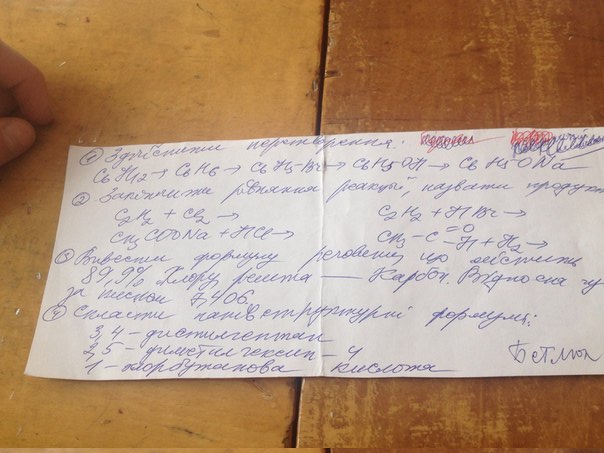 ① Здійснити перетворення:
C6H12 → C6H6 → C6H5-Br → C6H5OH → C6H5-ONa
② Закінчити рівняння реакцій, назвати продукти
C2H2 + Cl2 →   C2H2 + HBr →
CH3COONa + HCl →   CH3-C =O -H + H2 →
③ Вивести формулу речовини що містить
89,9% Хлору решта — Карбон. Відносна гу
за киснем 7,406.
④ Скласти напівструктурні формули:
3,4-диетилгептан
2,5-диметилгексин-4
1-хлорбутанова кислота